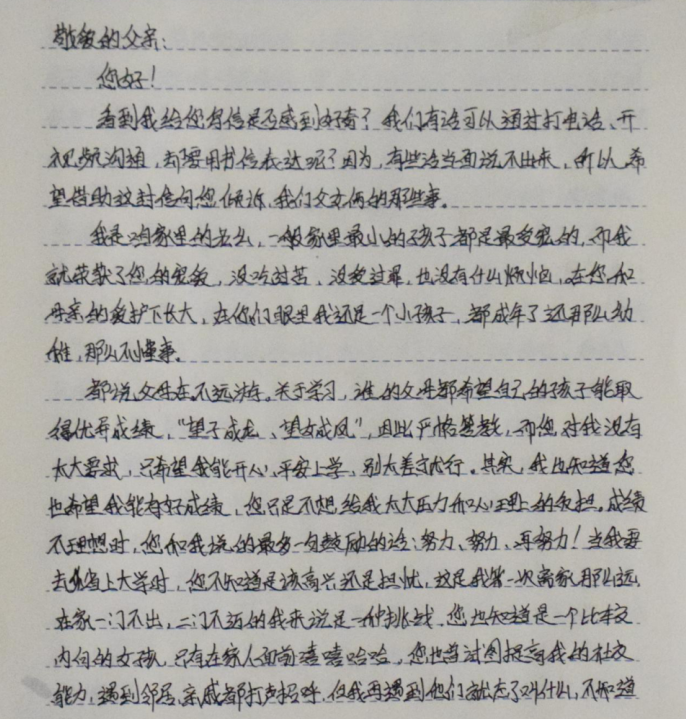 敬爱的父亲:
您好!
看到我给您写信是否感到好奇?我们有话可以通过打电话、开
视频沟通,却要用书信表达呢?因为,有些话当面说不出来,所以,希
望借助这封信向您倾诉,我们父女俩的那些事。
我是咱家里的老幺,一般家里最小的孩子都是最受宠的,而我
就荣获了您的宠爱,没吃过苦,没受过罪,也没有什么烦恼,在您和
母亲的爱护下长大,在你们眼里我还是一个小孩子,都成年了还那么幼
稚,那么不懂事。
都说父母在,不远游。关于学习,谁的父母都希望自己的孩子能取
得优异成绩,“望子成龙、望女成凤”,因此严格管教,而您对我没有
太大要求,只希望我能开心、平安上学,别太差就行。其实,我也知道您
也希望我能有好成绩,您只是不想给我太大压力和心理上的负担。成绩
不理想时,您和我说的最多一句鼓励的话:努力、努力、再努力!当我要
去省上大学时,您不知道是该高兴还是担忧,这是我第一次离家那么远,
在家一门不出,二门不迈的我来说是一种挑战。您也知道是一个比较
内向的女孩,只有在家人面前嘻嘻哈哈,您也尝试图提高我的社交
能力,遇到邻居、亲戚都打声招呼,但我再遇到他们就忘了叫什么,不知道